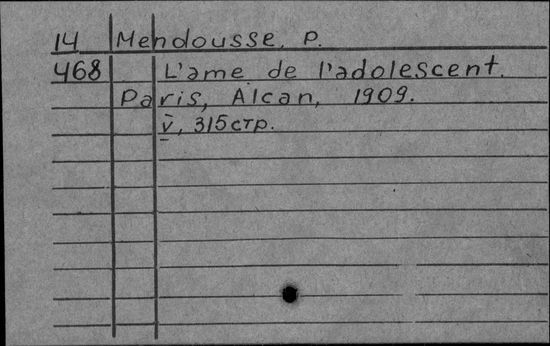 14 Mendousse, P.
468 L'ame de l'adolescent.
Paris, Alcan, 1909.
V, 315 стр.